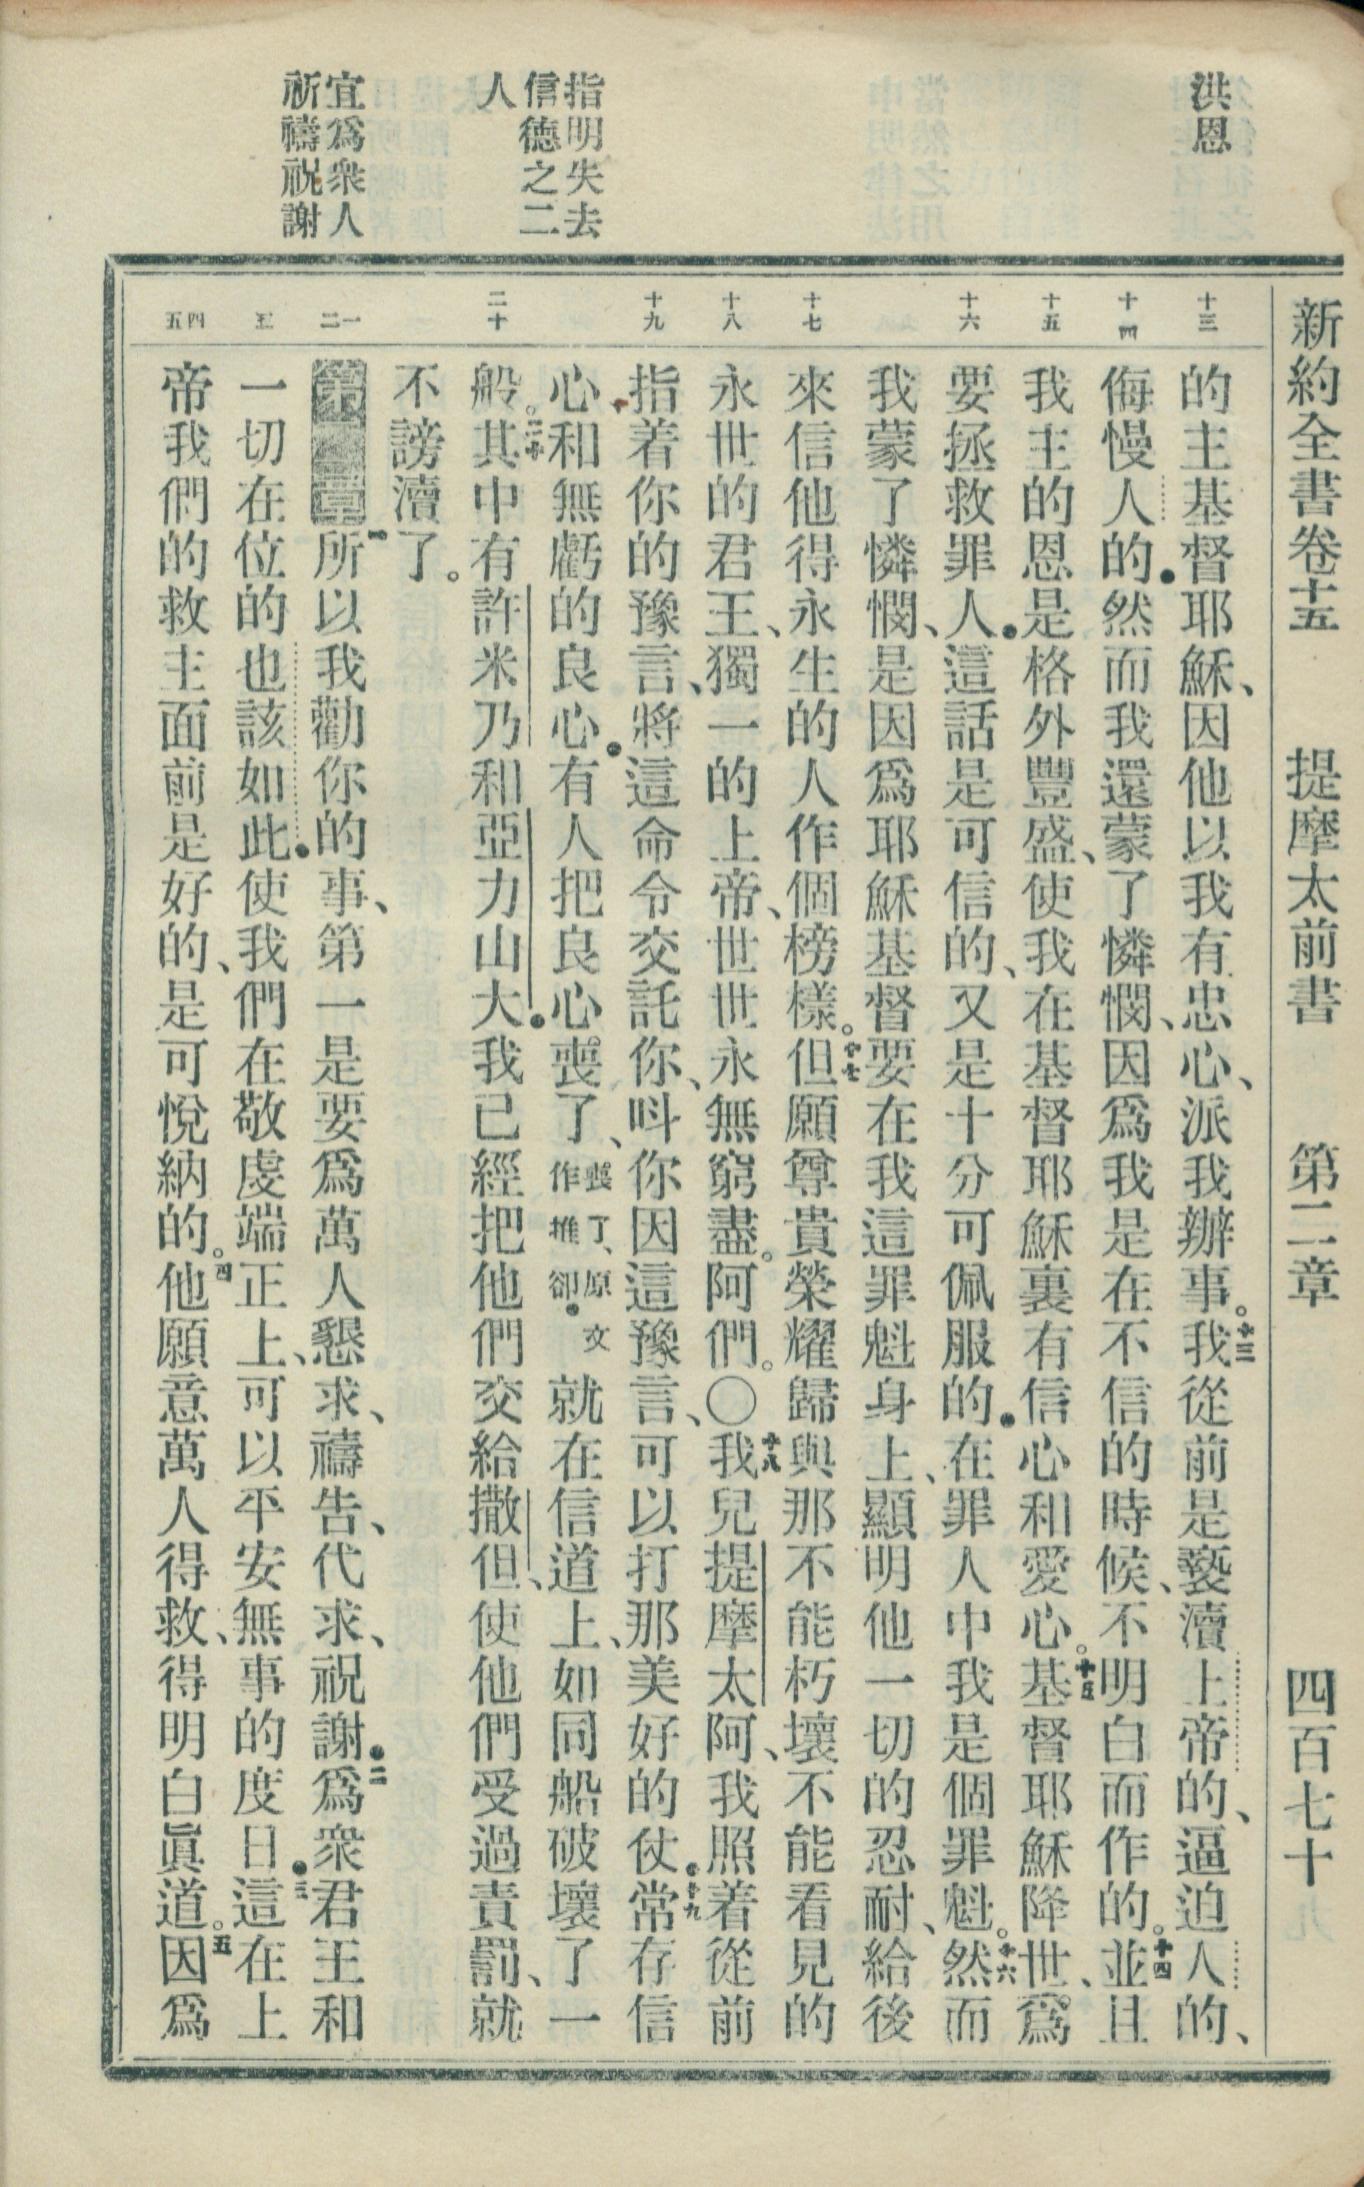 新約全書卷十五 提摩太前書 第二章 四百七十九
洪恩
指明失去
信德之二
人
宜爲衆人
祈禱祝謝
十三
十四
十五
十六
十七
十八
十九
二十
一二
三
四五
的主基督耶穌、因他以我有忠心、派我辦事。十三我從前是褻瀆上帝的、逼迫人的、
侮慢人的●然而我還蒙了憐憫、因爲我是在不信的時候、不明白而作的。十四並且
我主的恩是格外豐盛、使我在基督耶穌裏有信心和愛心。十五基督耶穌降世、爲
要拯救罪人●這話是可信的、又是十分可佩服的●在罪人中我是個罪魁。十六然而
我蒙了憐憫、是因爲耶穌基督要在我這罪魁身上、顯明他一切的忍耐、給後
來信他得永生的人作個榜樣。十七但願尊貴榮耀歸與那不能朽壞不能看見的
永世的君王、獨一的上帝、世世永無窮盡。阿們。〇十八我兒提摩太阿、我照着從前
指着你的豫言、將這命令交託你、呌你因這豫言、可以打那美好的仗●十九常存信
心和無虧的良心●有人把良心喪了、喪了、原文作推卻●就在信道上、如同船破壞了一
般。二十其中有許米乃和亞力山大●我已經把他們交給撒但、使他們受過責罰、就
不謗瀆了。
第二章一所以我勸你的事、第一是要爲萬人懇求、禱告、代求、祝謝●二爲衆君王和
一切在位的也該如此●使我們在敬虔端正上、可以平安無事的度日●三這在上
帝我們的救主面前是好的、是可悅納的。四他願意萬人得救、得明白眞道。五因爲